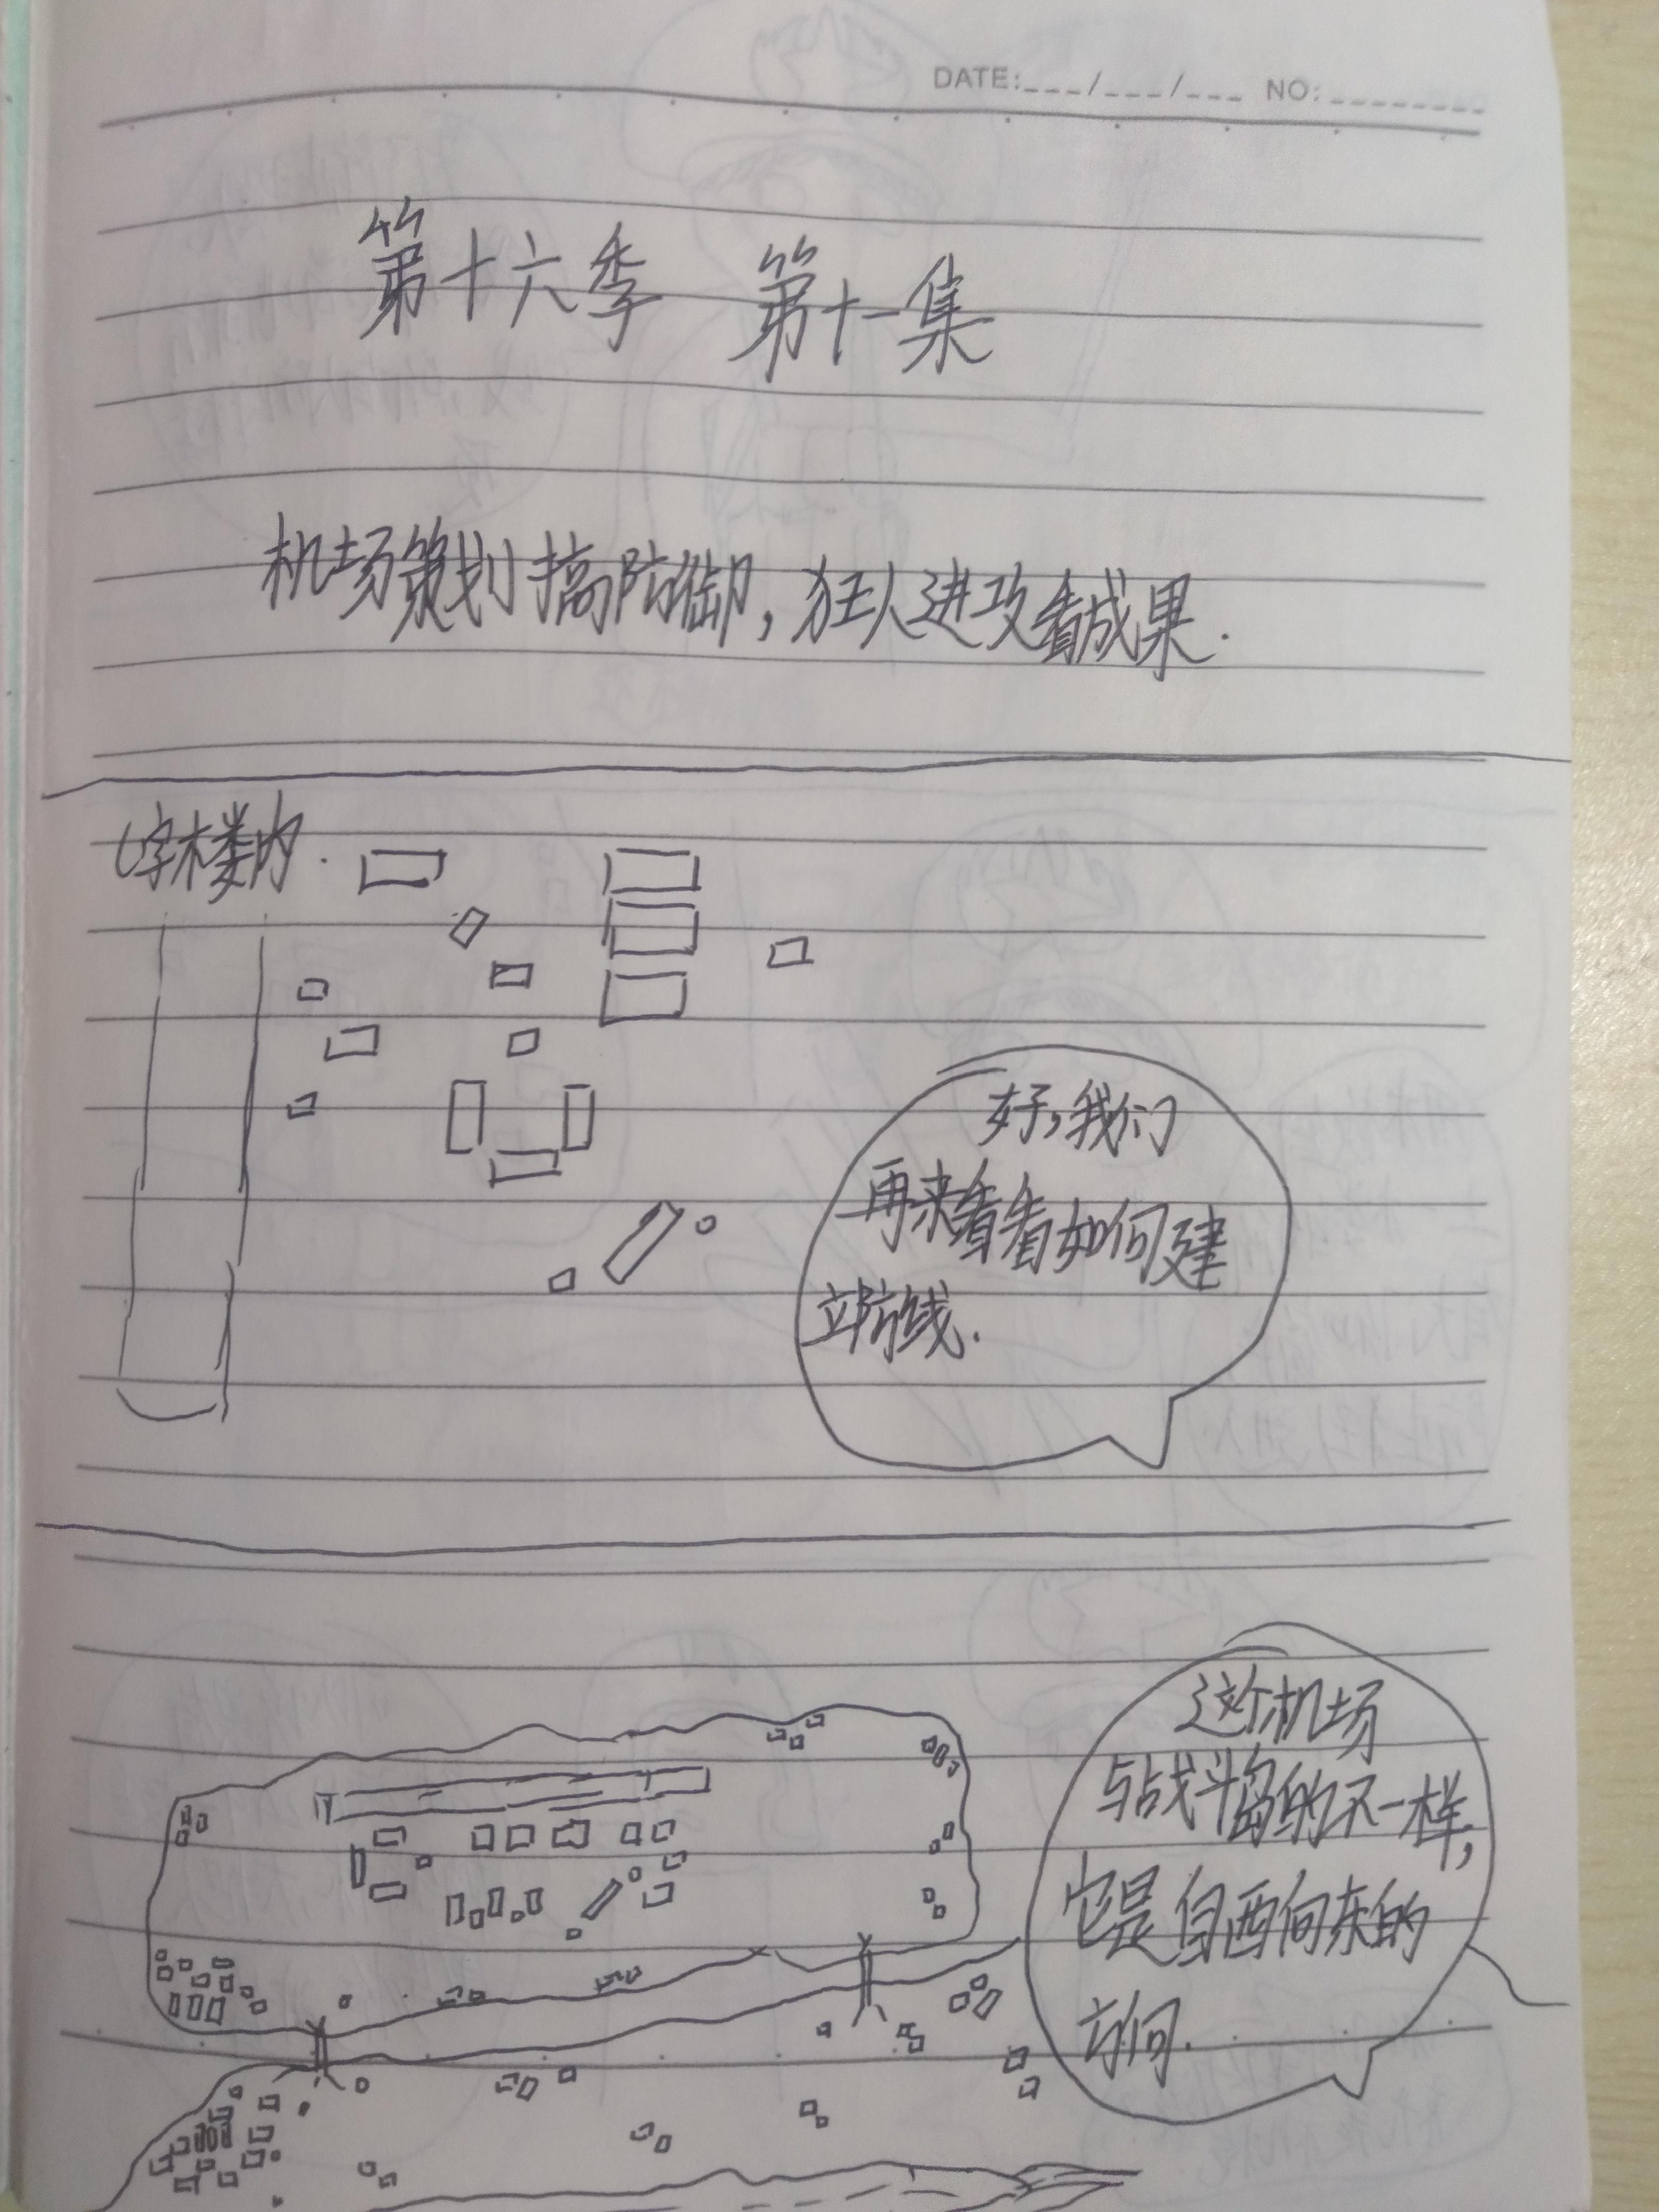 DATE:___/___/___ NO:________
第十六季 第十一集
机场策划搞防御，狂人进攻看成果.
C字楼内.
好，我们
再来看看如何建
立防线.
这个机场
与战斗岛的不一样，
它是自西向东的
方向.